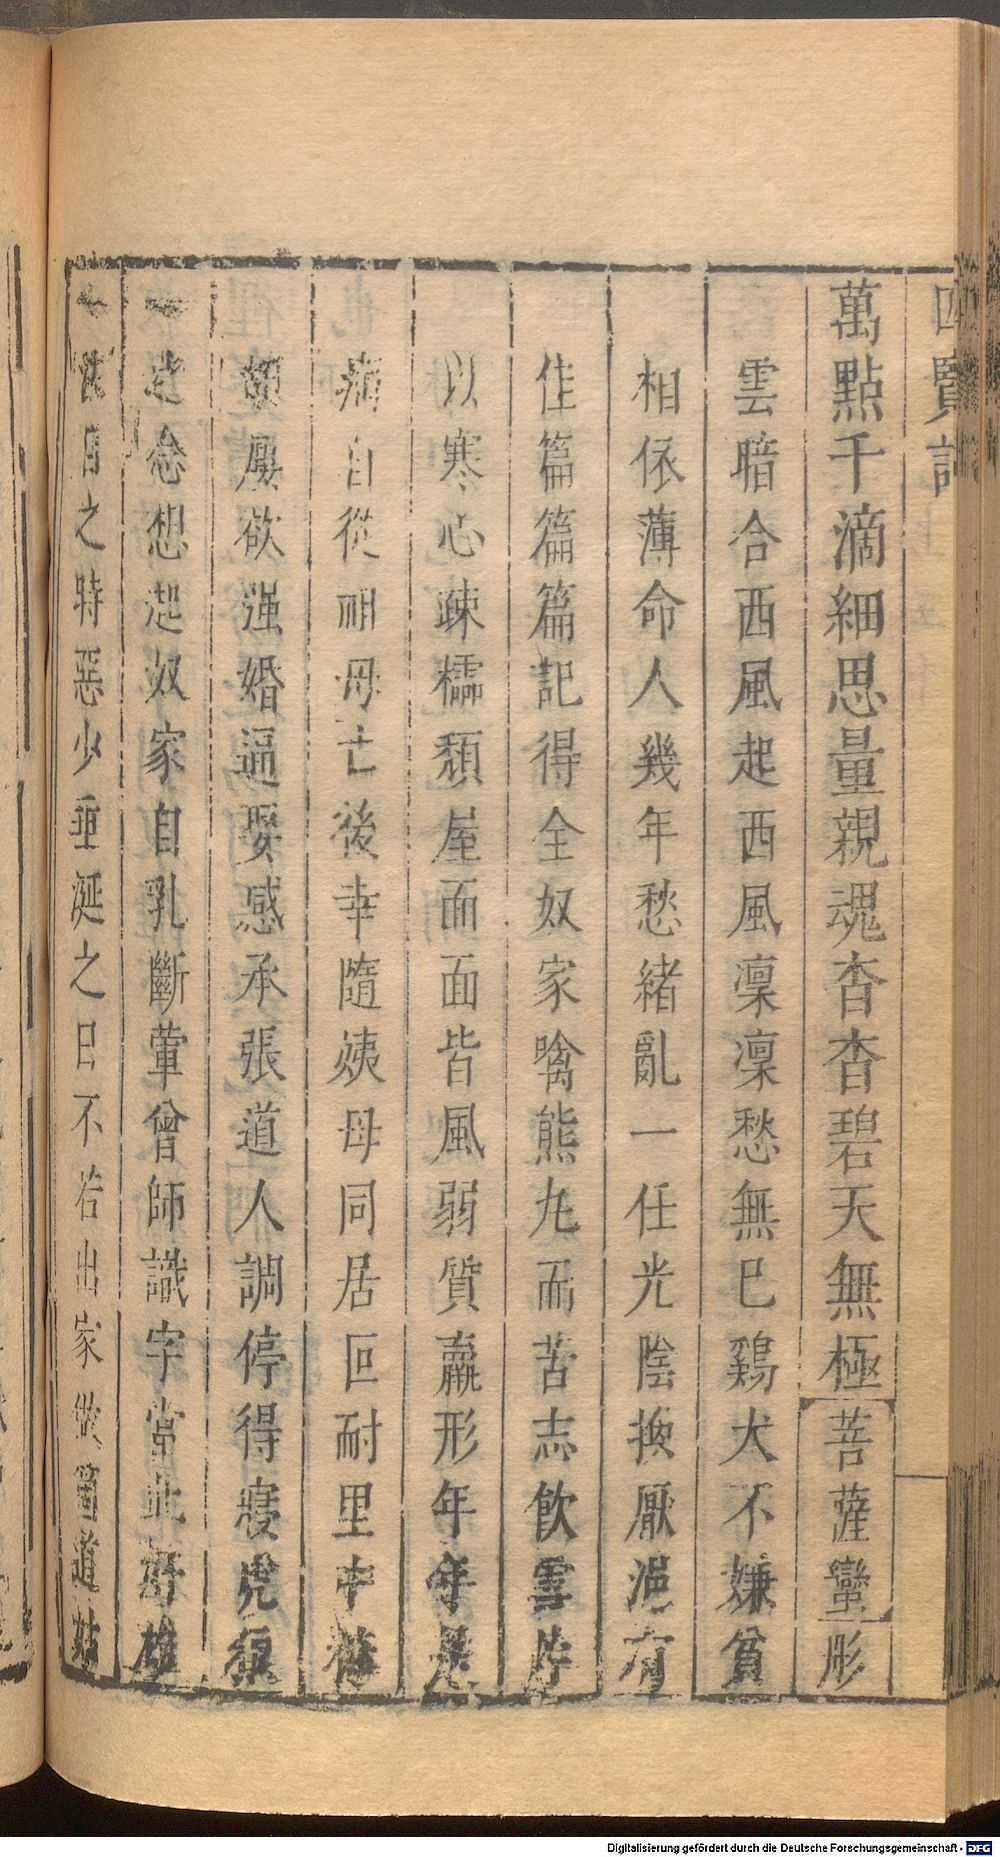 四賢記
萬點千滴細思量親魂杳杳碧天無極菩薩蠻彤
雲暗合西風起西風凜凜愁無巳鷄犬不嫌貧
相依薄命人幾年愁緒亂一任光陰換厭浥有
佳篇篇篇記得全奴家喻熊九而苦志飲雪片
以寒心疎櫺頹屋面面皆風弱質羸形年年是
病自從祖母亡後幸隨姨母同居叵耐里中
鳳欲强婚逼娶感承張道人調停得寝虎狼
之念想起奴家自乳斷葷曾師識字當此
日之時惡少垂涎之日不若出家做箇道姑
Digitalisierung gefördert durch die Deutsche Forschungsgemeinschaft - DFG